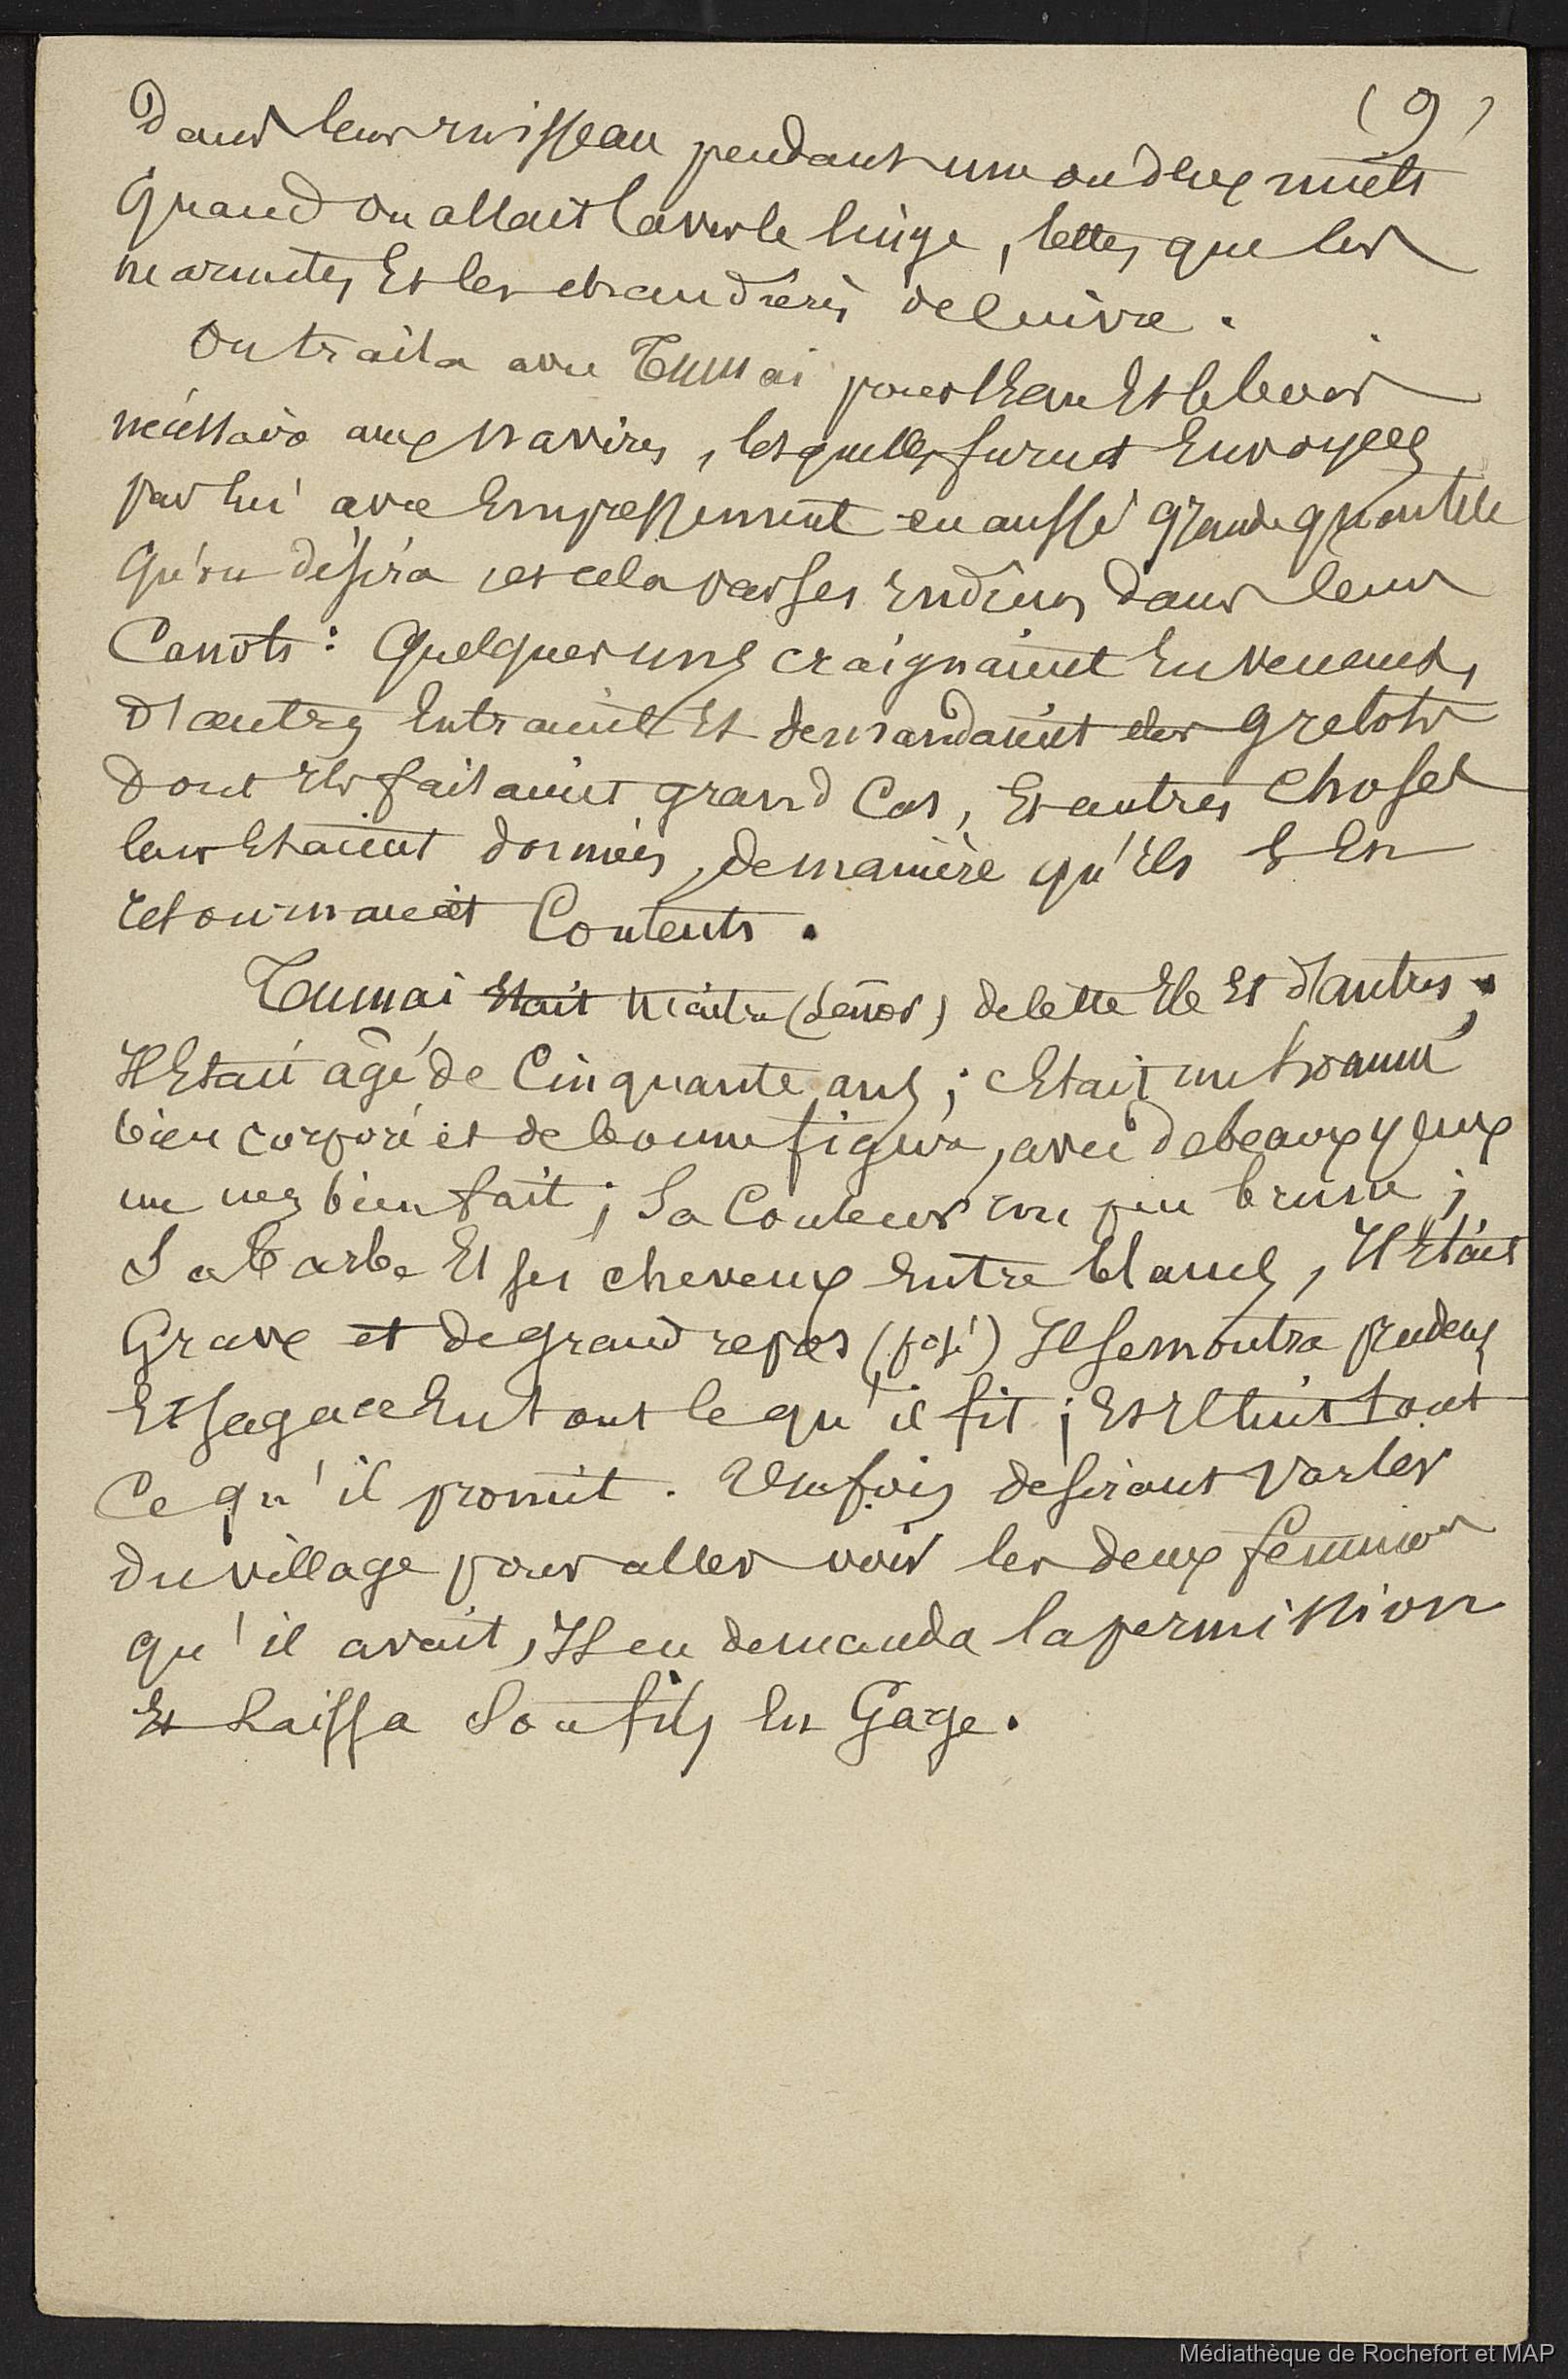 (9)
Dans leur ruisseau pendant une ou deux nuits
quand on allait laver le linge, telles que les
marmites et les chaudières de cuivre.
On traita avec Tumai pour l'eau et le bois
nécessaire aux navires, lesquelles furent envoyées
par lui avec empressement en aussi grande quantité
qu'on désira, et cela par ses Indiens dans leurs
Canots : Quelques uns craignaient en venant,
d'autres entraient et demandaient des grelots
dont ils faisaient grand cas, et autres choses
leur étaient données, de manière qu'ils s'en
retournaient Contents.
Tumai était maître (señor) de cette île et d'autres ;
Il était âgé de Cinquante ans ; c'était un homme
bien corporé et de bonne figure, avec de beaux yeux
un nez bien fait ; sa Couleur un peu brune ;
Sa barbe et ses cheveux entre blancs, Il était
Grave et de grand repos (posé) Il se montra prudent
et sagace en tout ce qu'il fit ; et il tint tout
Ce qu'il promit. Une fois désirant parler
du village pour aller voir les deux femmes
qu'il avait, Il en demanda la permission
et laissa son fils en Gage.
Médiathèque de Rochefort et MAP